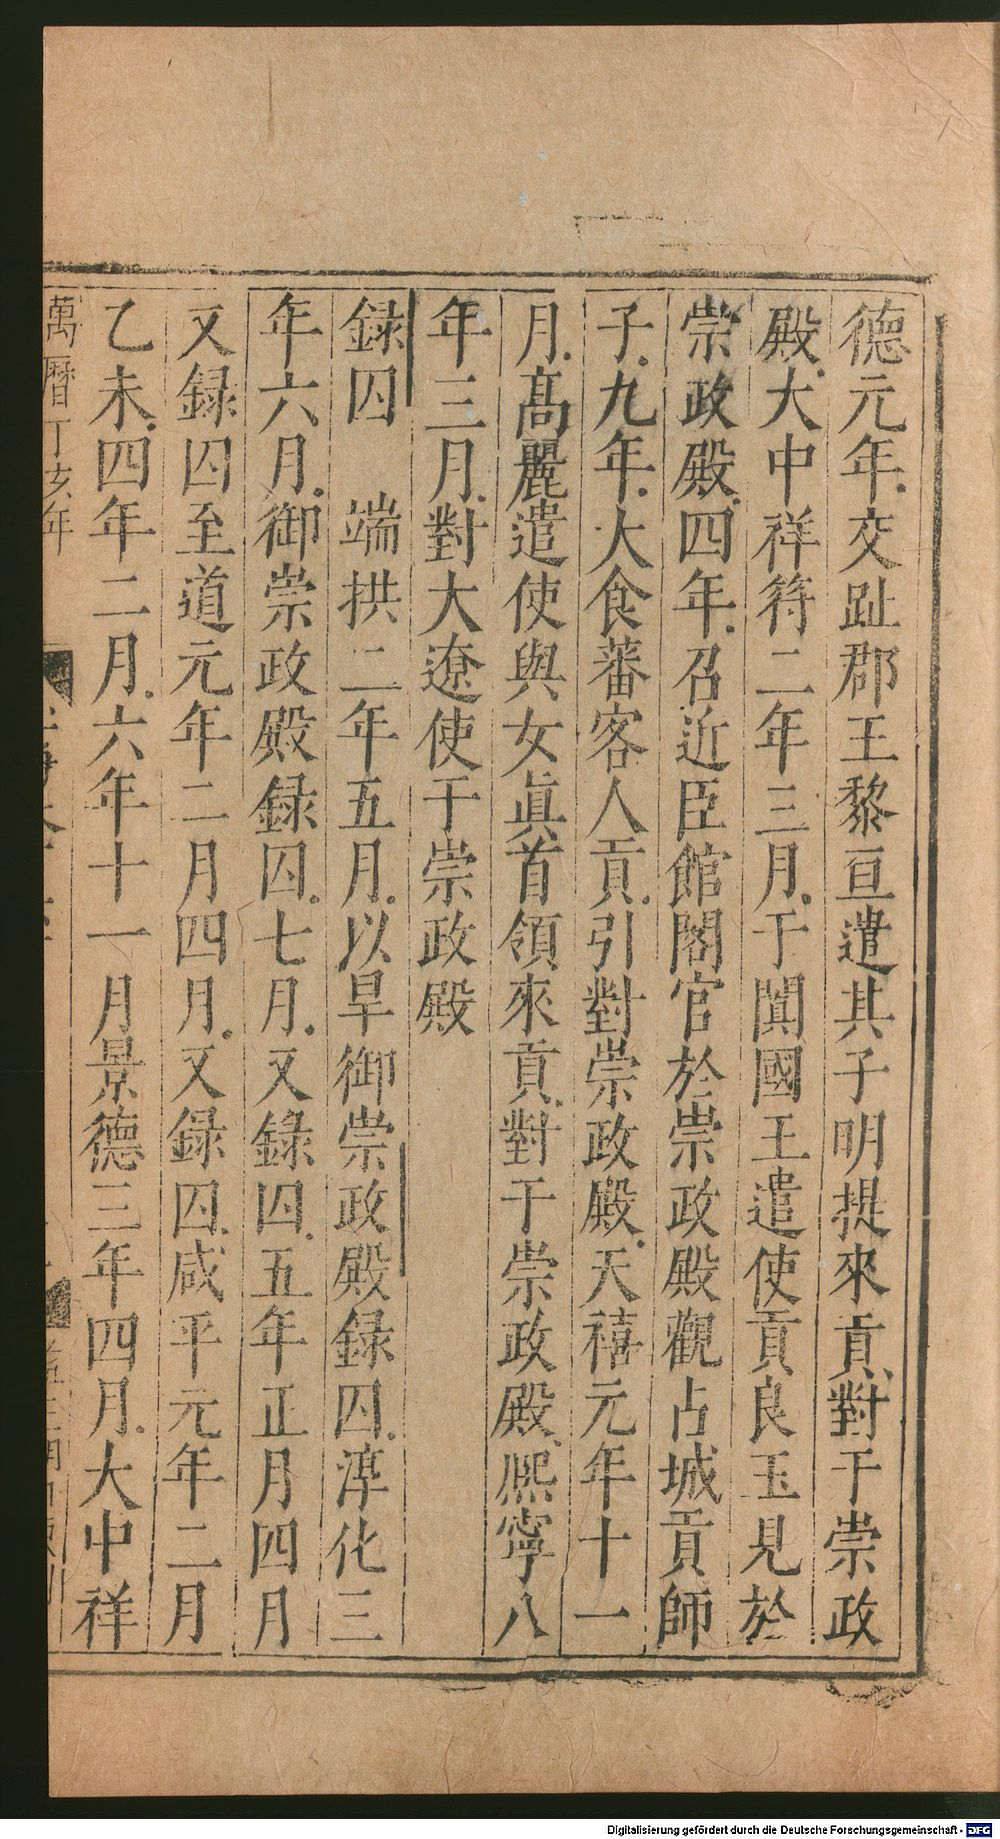 德元年交趾郡王黎亘遣其子明提來貢對于崇政
殿大中祥符二年三月于闐國王遣使貢良玉見於
崇政殿四年召近臣館閣官於崇政殿觀占城貢師
子九年大食蕃客人貢引對崇政殿天禧元年十一
月髙麗遣使與女眞首領來貢對于崇政殿熈寧八
年三月對大遼使于崇政殿
録囚　端拱二年五月以旱御崇政殿録囚淳化三
年六月御崇政殿録囚七月又錄囚五年正月四月
又録囚至道元年二月四月又録囚咸平元年二月
乙未四年二月六年十一月景德三年四月大中祥
萬曆丁亥年
Digitalisierung gefördert durch die Deutsche Forschungsgemeinschaft - DFG